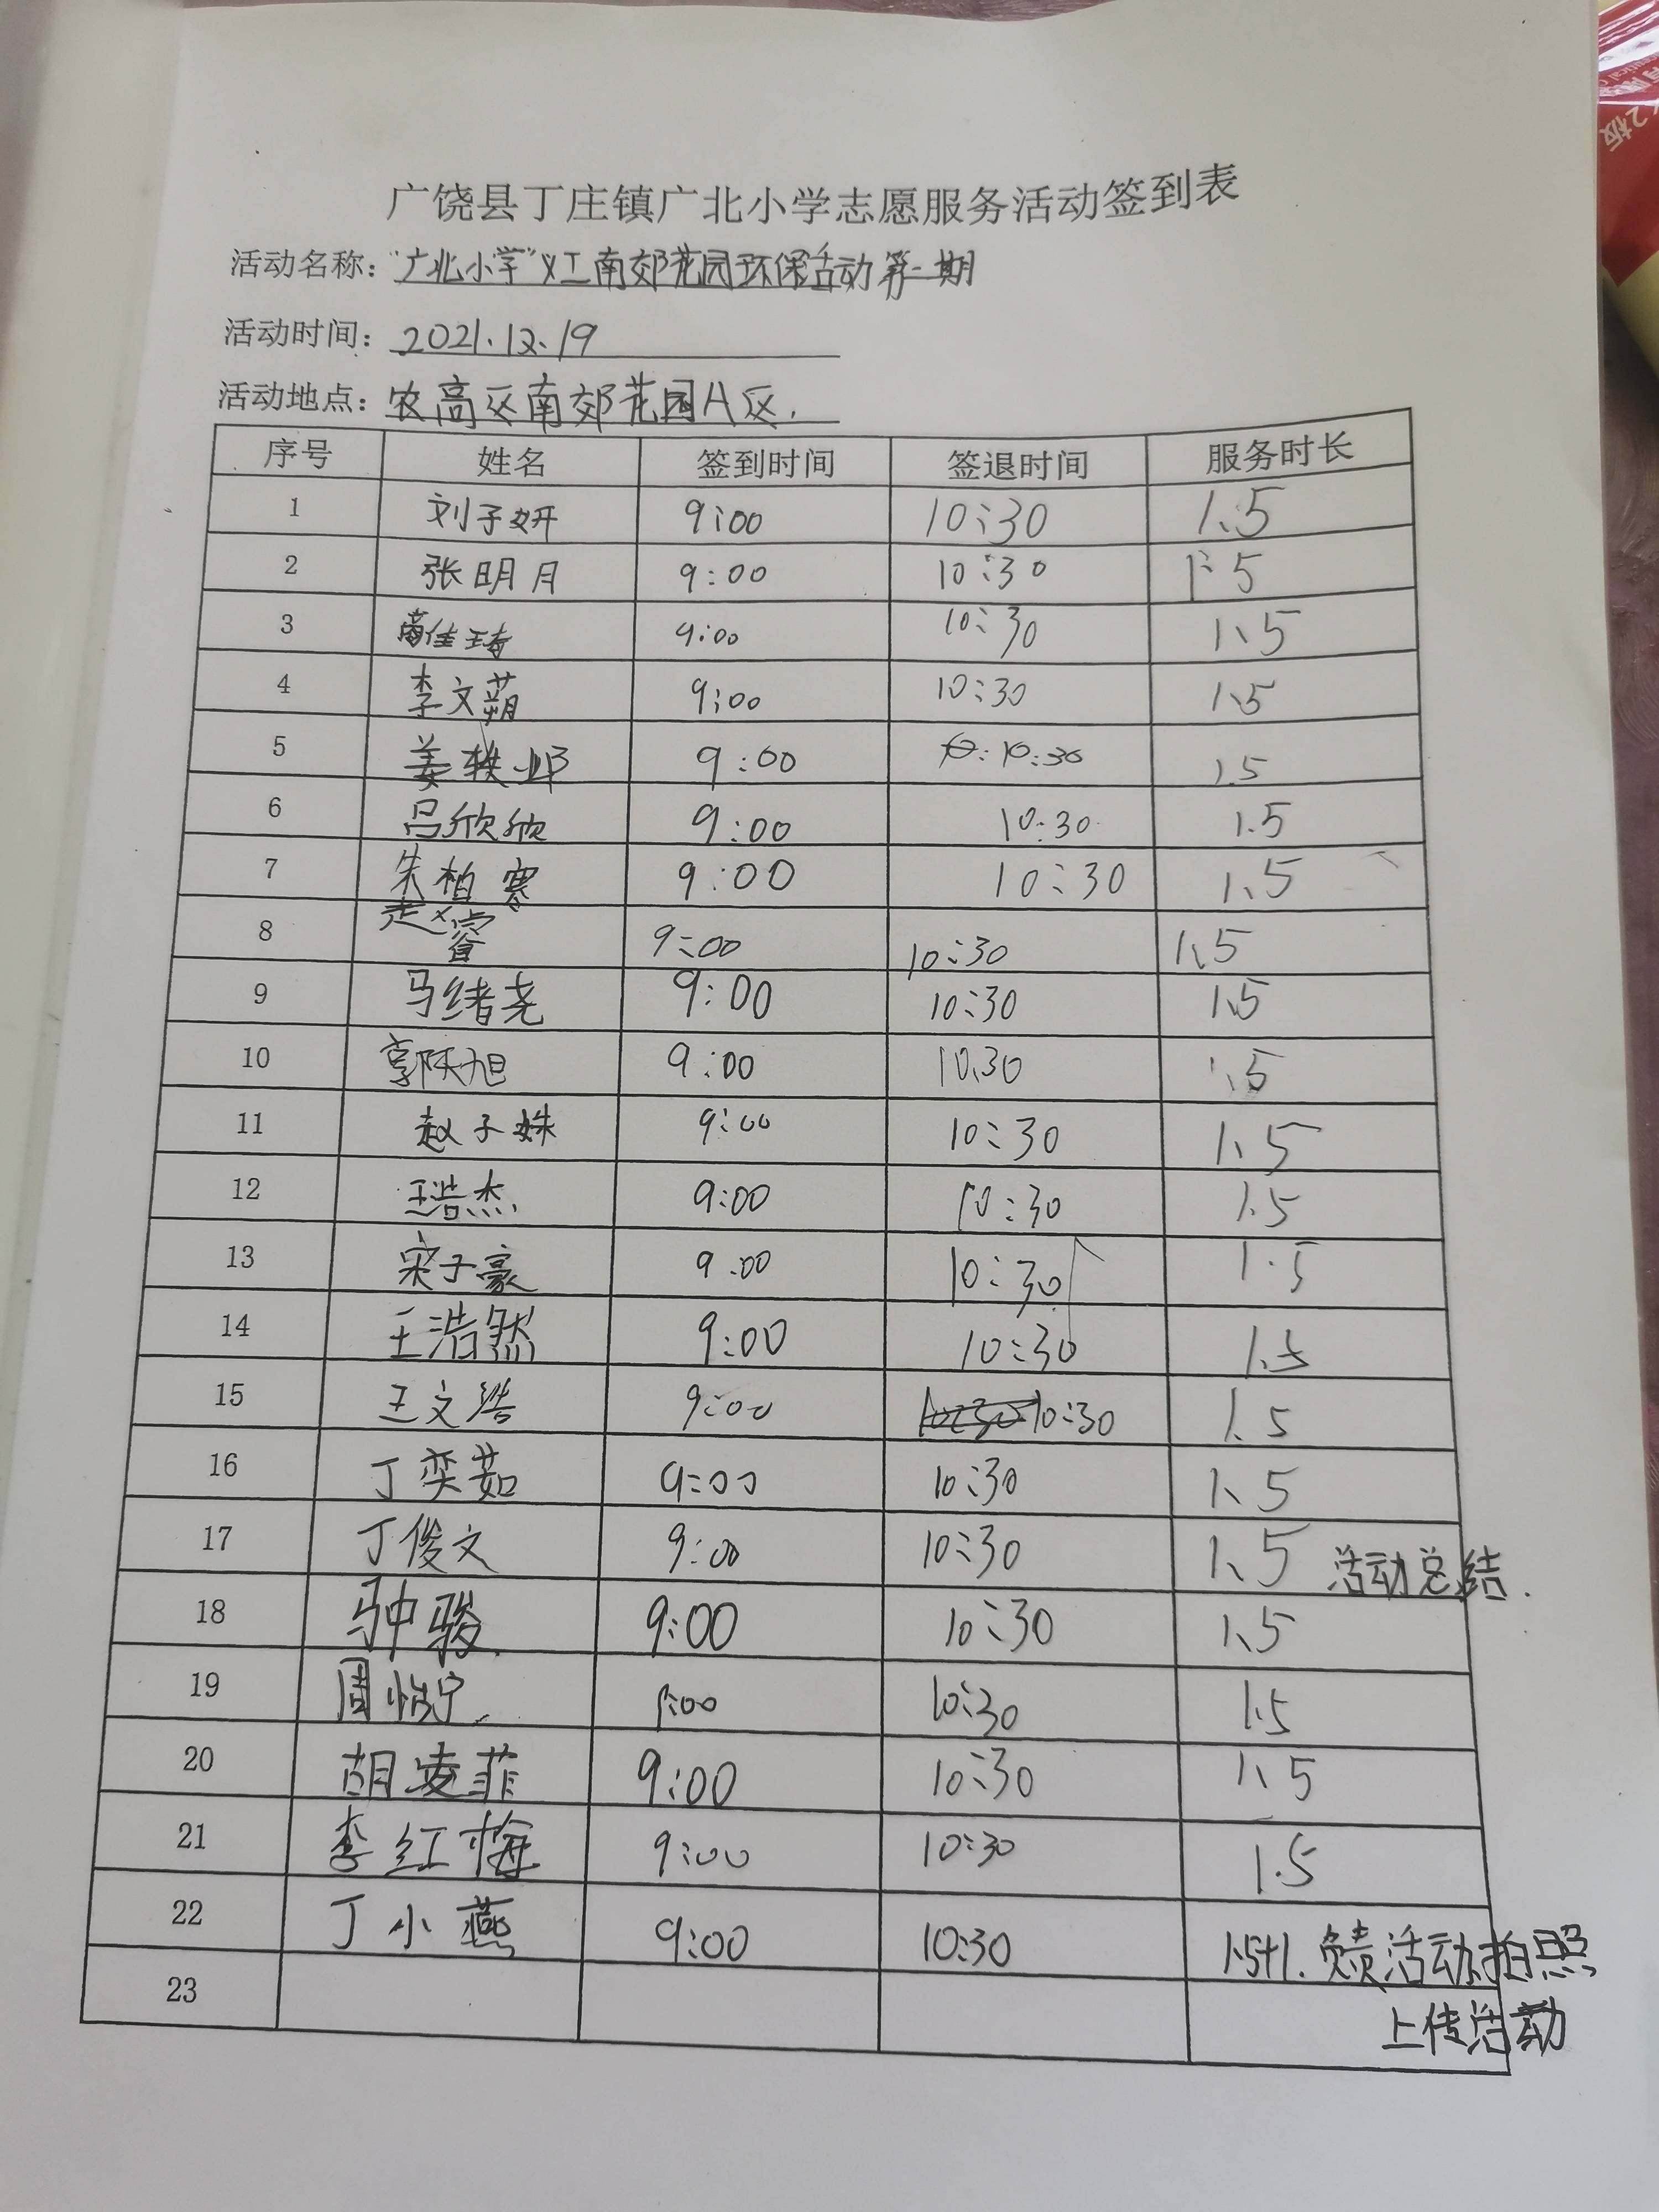 广饶县丁庄镇广北小学志愿服务活动签到表
活动名称：“广北小学”义工南郊花园环保活动第一期
活动时间：2021.12.19
活动地点：农高区南郊花园A区.
序号 姓名 签到时间 签退时间 服务时长
1 刘子妍 9:00 10:30 1.5
2 张明月 9:00 10:30 1.5
3 9:00 10:30 1.5
4 李文蒴 9:00 10:30 1.5
5 9:00 10:30 1.5
6 吕欣欣 9:00 10:30 1.5
7 朱柏寒 9:00 10:30 1.5
8 9:00 10:30 1.5
9 马绪尧 9:00 10:30 1.5
10 9:00 10.30 1.5
11 赵子姝 9:00 10:30 1.5
12 王浩杰 9:00 10:30 1.5
13 宋子豪 9:00 10:30 1.5
14 王浩然 9:00 10:30 1.5
15 王文浩 9:00 10:30 1.5
16 丁奕茹 9:00 10:30 1.5
17 丁俊文 9:00 10:30 1.5 活动总结.
18 9:00 10:30 1.5
19 周怡宁 9:00 10:30 1.5
20 胡凌菲 9:00 10:30 1.5
21 李红梅 9:00 10:30 1.5
22 丁小燕 9:00 10:30 1.5+1. 负责活动拍照
23 上传活动
2板